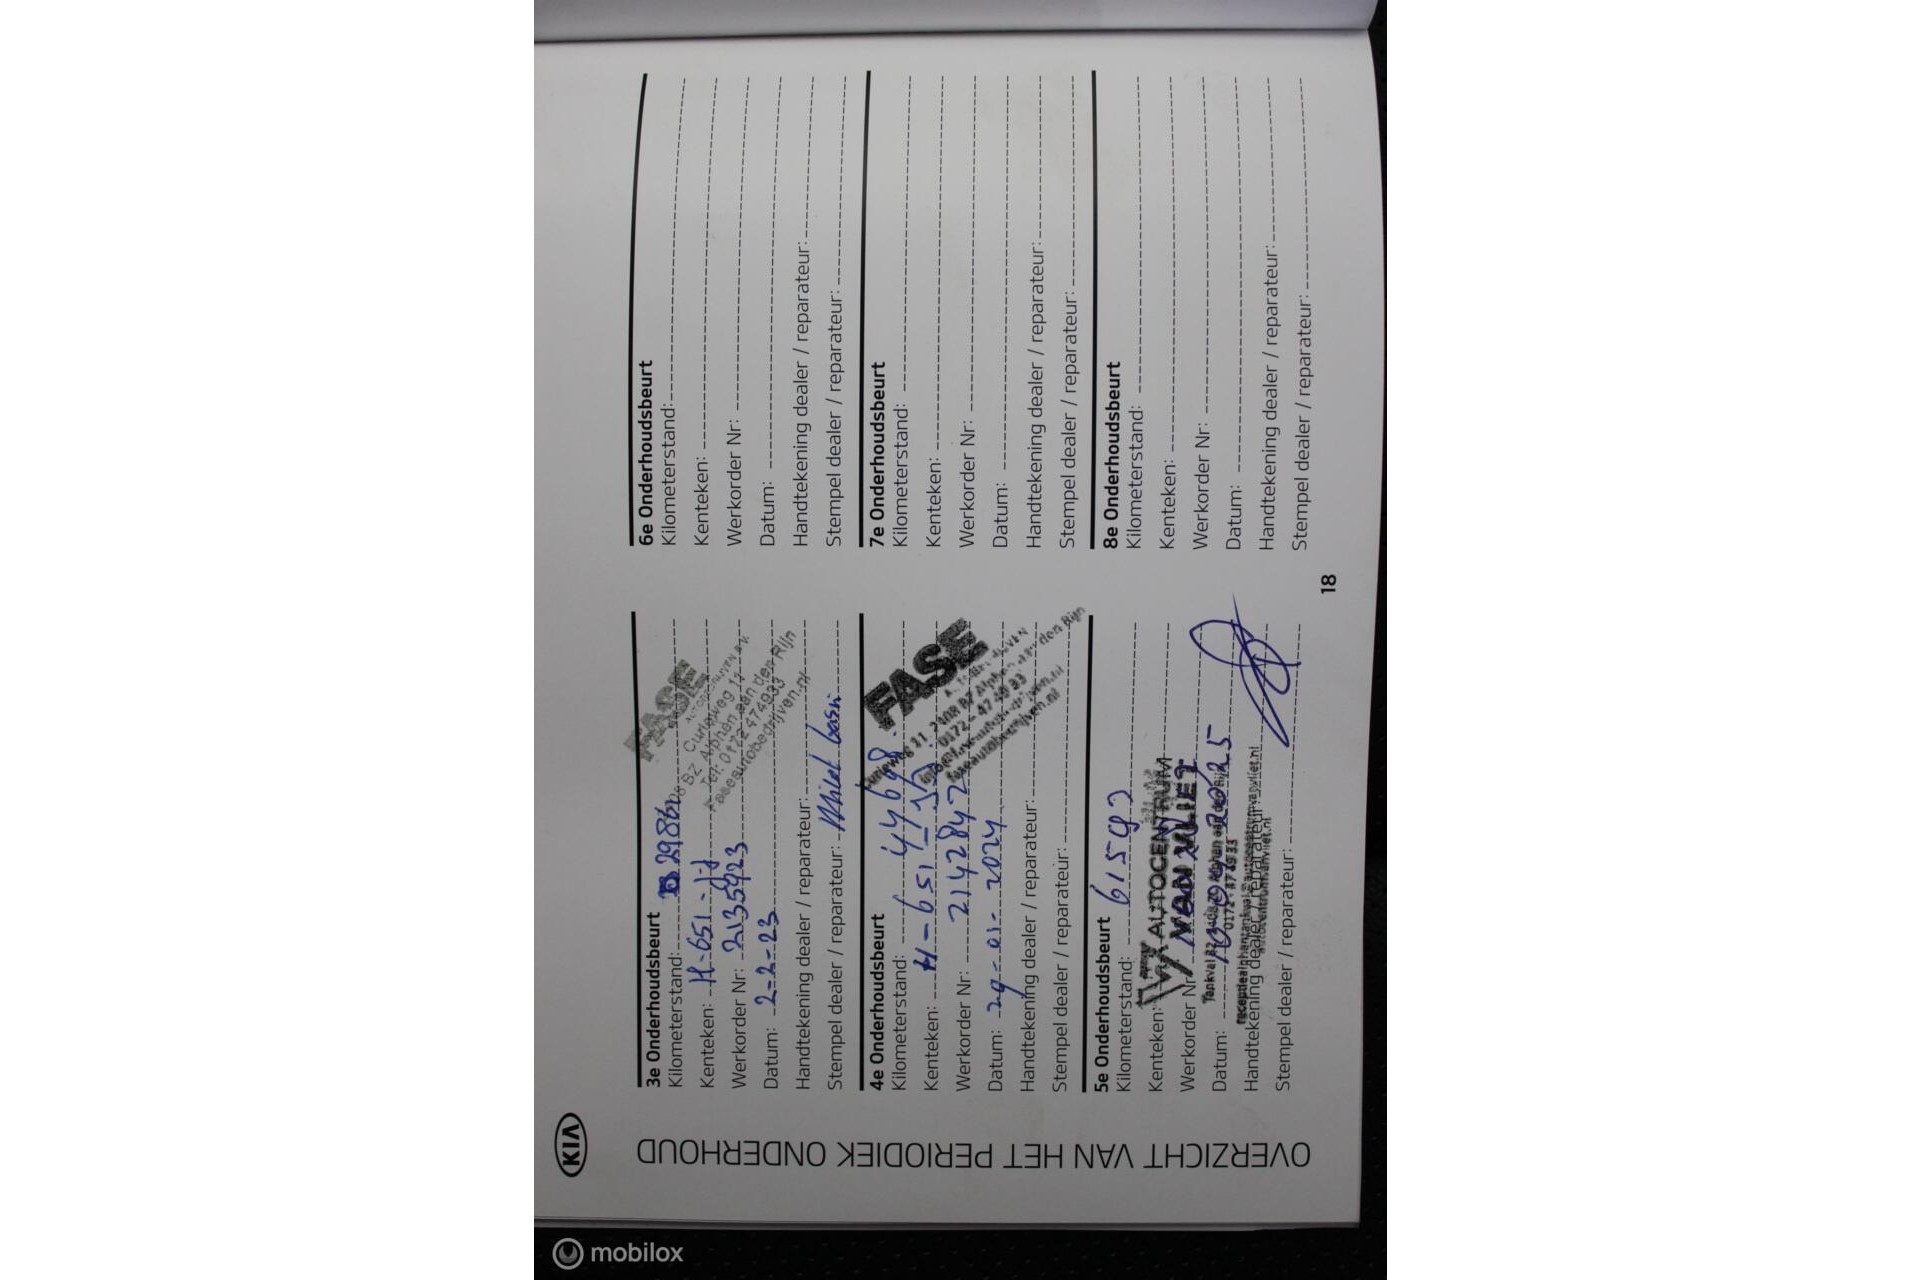 KIA
OVERZICHT VAN HET PERIODIEK ONDERHOUD
3e Onderhoudsbeurt
Kilometerstand: 29864
Kenteken: H-651-JJ
Werkorder Nr: 2135923
Datum: 2-2-23
Handtekening dealer / reparateur:
Stempel dealer / reparateur:
FASE
AUTOBEDRIJVEN B.V.
Curieweg 11
BZ Alphen aan den Rijn
Tel: 0172 474933
Faseautobedrijven.nl
4e Onderhoudsbeurt
Kilometerstand: 44698
Kenteken: H-651-JJ
Werkorder Nr: 2142842
Datum: 29-01-2024
Handtekening dealer / reparateur:
Stempel dealer / reparateur:
FASE
Curieweg 11 2408 BZ Alphen aan den Rijn
0172 - 47 49 33
faseautobedrijven.nl
5e Onderhoudsbeurt
Kilometerstand:
Kenteken:
Werkorder Nr:
Datum: 2025
Handtekening dealer / reparateur:
Stempel dealer / reparateur:
AUTOCENTRUM
VAN VLIET
Alphen aan den Rijn
0172 - 47 49 33
autocentrumvanvliet.nl
6e Onderhoudsbeurt
Kilometerstand:
Kenteken:
Werkorder Nr:
Datum:
Handtekening dealer / reparateur:
Stempel dealer / reparateur:
7e Onderhoudsbeurt
Kilometerstand:
Kenteken:
Werkorder Nr:
Datum:
Handtekening dealer / reparateur:
Stempel dealer / reparateur:
8e Onderhoudsbeurt
Kilometerstand:
Kenteken:
Werkorder Nr:
Datum:
Handtekening dealer / reparateur:
Stempel dealer / reparateur:
18
mobilox